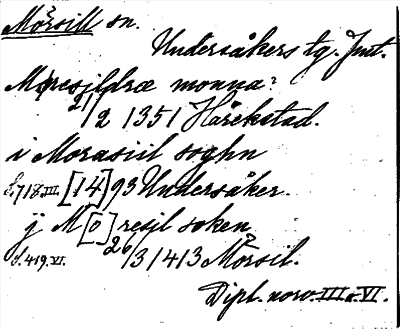 Mörsill sn.
Undersåkers tg. Jmt.
Møresildræ monna?
21/2 1351 Hårekstad.
i Morasiil soghn
S. 718. III. [14]93 Undersåker.
j M[o]resil soken
S. 419. VI. 26/3 1413 Mörsil.
Dipl. norv. III o. VI.